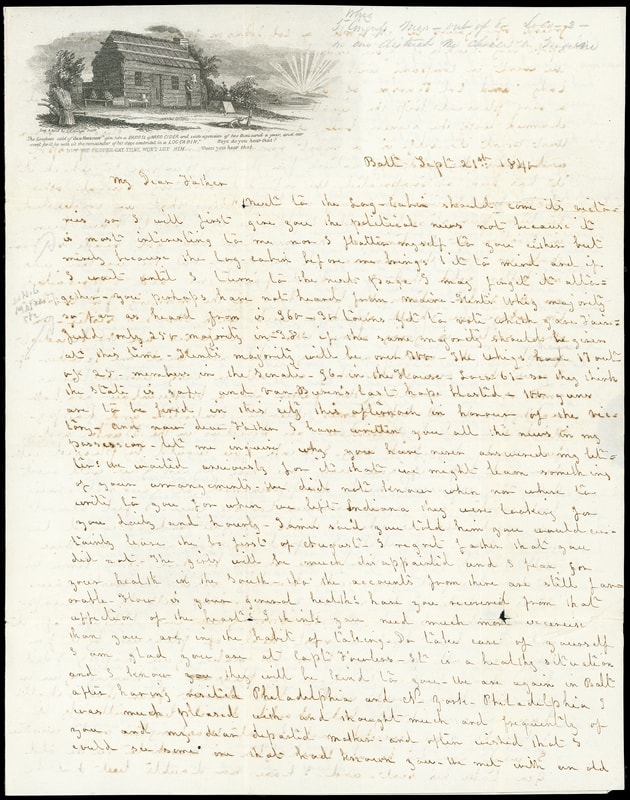 Whig
Balt. Sept. 21st 1840
My Dear Father
Next to the Log-Cabin should come its victo-
ries so I will first give you the political news not because it
is most interesting to me nor I flatter myself to you either but
merely because the Log-cabin before me brings it to mind and if
I wait until I turn to the next Page I may forget it alto-
gether. You perhaps have not heard from Maine - Kents Whig majority
so far as heard from is 360 - 30 towns yet to vote which gave Fair-
field only 250 majority in 38 if the same majority should be given
at this time - Kents majority will be over 100 - The Whigs have 17 out
of 25 - members in the Senate - 96 in the House - Locos 61 - so they think
the State is safe and Van Buren's last hope blasted - 100 guns
are to be fired in this city this afternoon in honour of the vic-
tory - and now dear Father I have written you all the news in my
possession - let me inquire why you have never answered my let-
ters. We waited anxiously for it that we might learn something
of your arrangements - we did not know when nor where to
write to you for when we left Indiana they were looking for
you daily and hourly - James said you told him you would cer-
tainly leave the first of August - I regret Father that you
did not - The girls will be much disappointed and I fear for
your health in the South - tho' the accounts from there are still favo
rable - How is your general health have you recovered from that
affection of the heart? I think you need much more exercise
than you are in the habit of taking - Do take care of yourself
I am glad you are at Capt - It is a healthy situation
and I know they will be kind to you - We are again in Balt
after having visited Philadelphia and N. York - Philadelphia I
was much pleased with and thought much and frequently of
you and my dear departed mother - and often wished that I
could see some one that had known you - We met with an old